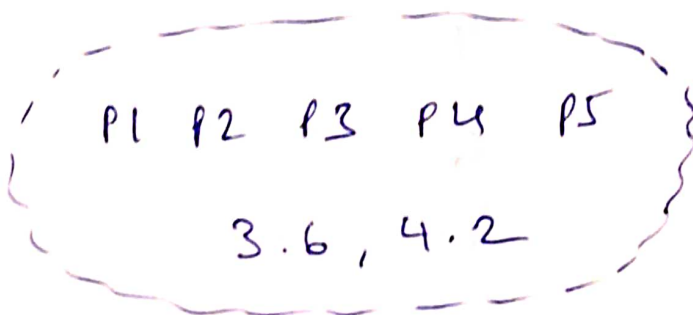 P1 P2 P3 P4 P5
3.6, 4.2